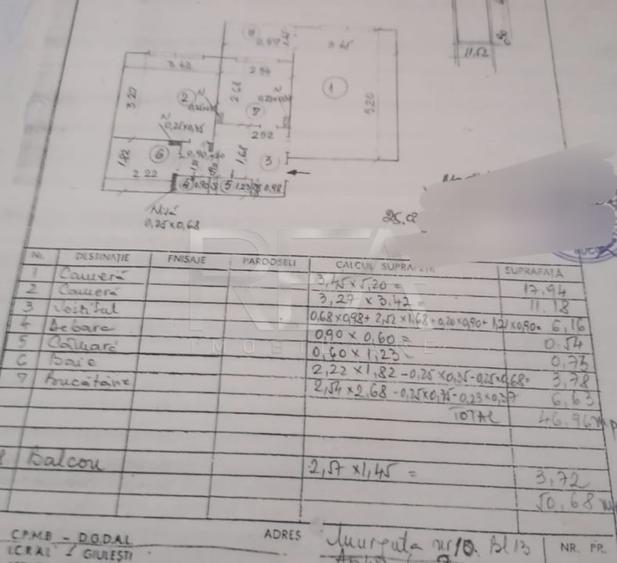 11,52
8
0,97
3,45
1
5,20
3,42
3,20
2
2,54
2,68
7
0,25x0,35
2,52
1,82
6
0,90
1,68
3
2,22
4
0,90
5
1,23
0,98
Nișă
0,25x0,68
25.0
Nr. DESTINAȚIE FINISAJE PARDOSELI CALCUL SUPRAFEȚEI SUPRAFAȚA
1 Cameră 3,45 x 5,20 = 17.94
2 Cameră 3,27 x 3.42 = 11.18
3 Vestibul 0,68x0,98+2,52x1,68+0,20x0,90+1,21x0,90= 6,16
4 Debara 0,90 x 0,60 = 0.54
5 Cămară 0,60 x 1,23 = 0,73
6 Baie 2,22 x 1,82 - 0,25x0,35 - 0,25x0,68= 3,78
7 Bucătărie 2,54 x 2,68 - 0,25x0,35 - 0,23x0,27 6,63
TOTAL 46.96 mp
8 Balcon 2,57 x 1,45 = 3,72
50,68 m
C.P.M.B - D.O.D.A.L ADRES nr 10. Bl 13 NR. PR.
I.C.R.A.L GIULEȘTI